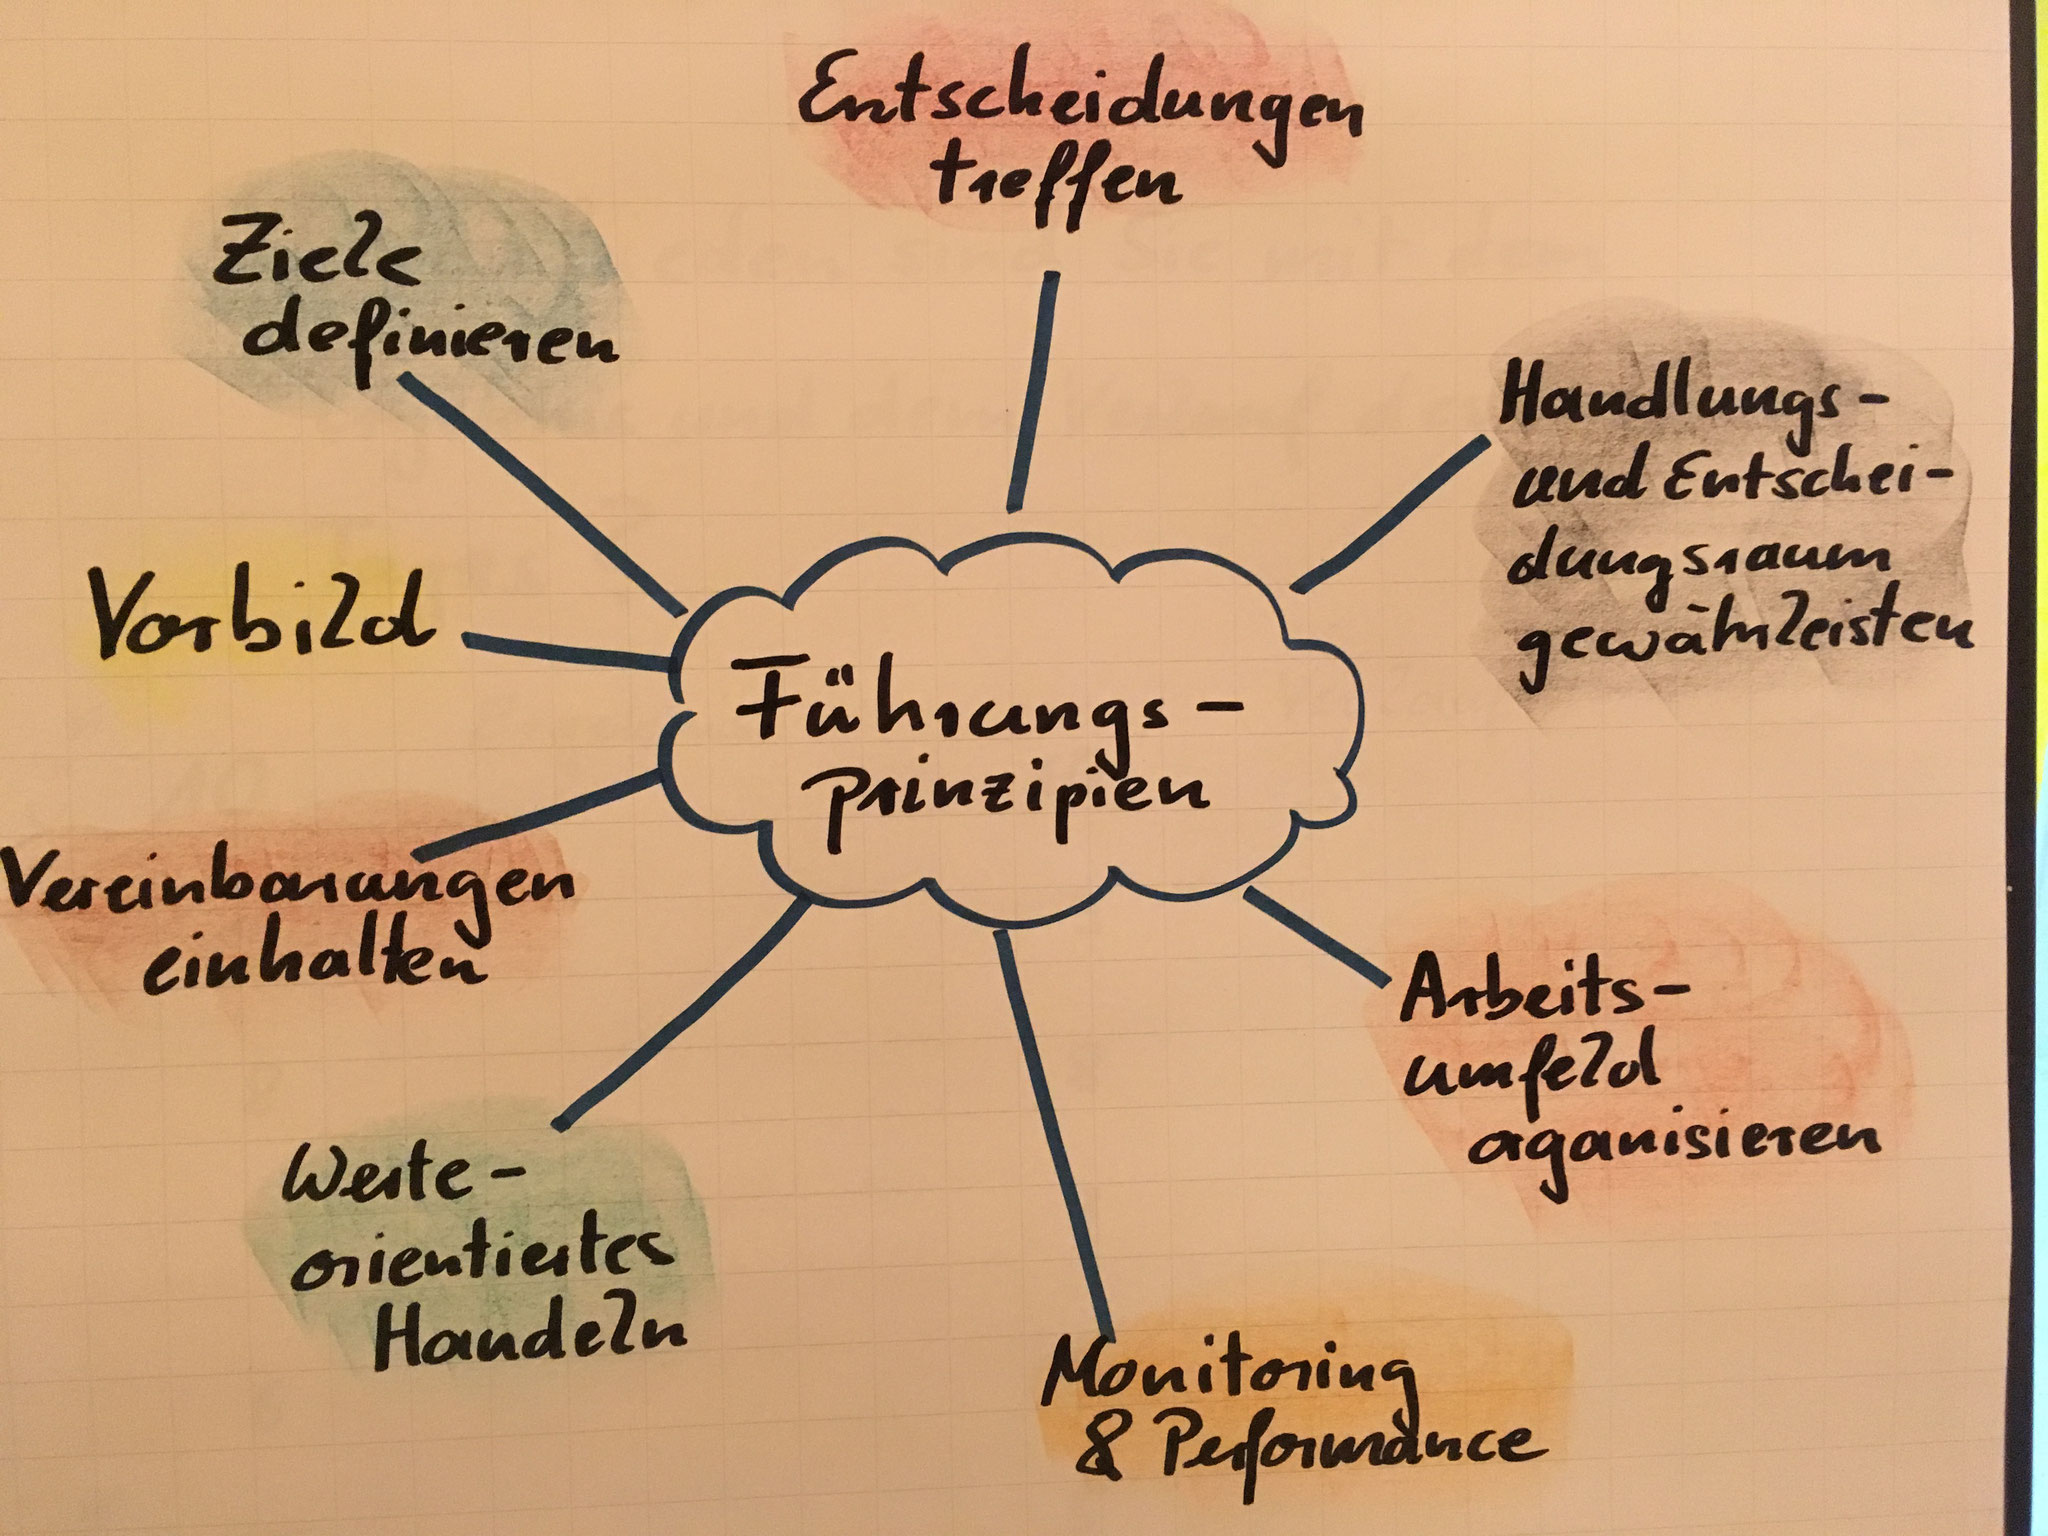 Entscheidungen
treffen
Ziele
definieren
Handlungs-
und Entschei-
dungsraum
gewährleisten
Vorbild
Führungs-
prinzipien
Vereinbarungen
einhalten
Arbeits-
umfeld
organisieren
Werte-
orientiertes
Handeln
Monitoring
& Performance